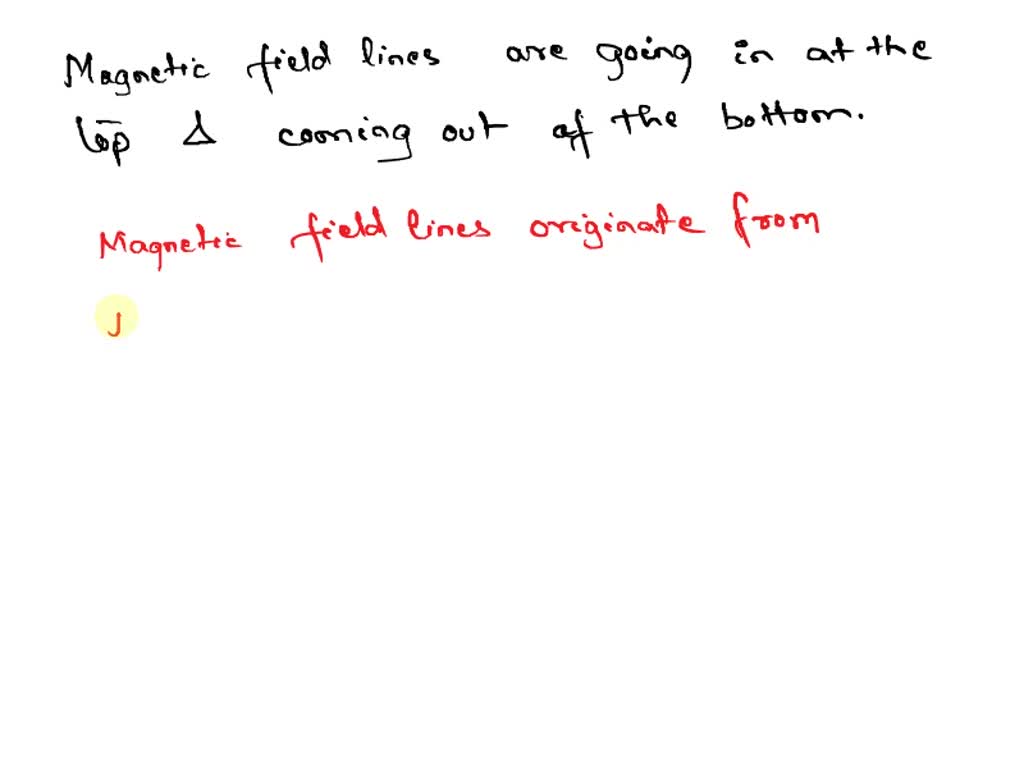 Magnetic field lines are going in at the
top & coming out of the bottom.
Magnetic field lines originate from